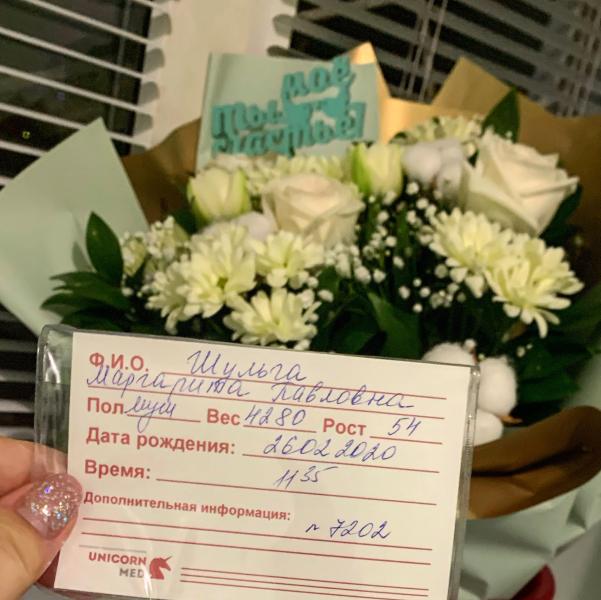 Ты моё
счастье!
Ф.И.О. Шульга
Маргарита Павловна
Пол муж Вес 4280 Рост 54
Дата рождения: 26 02 2020
Время: 11 35
Дополнительная информация:
7202
UNICORN
MED